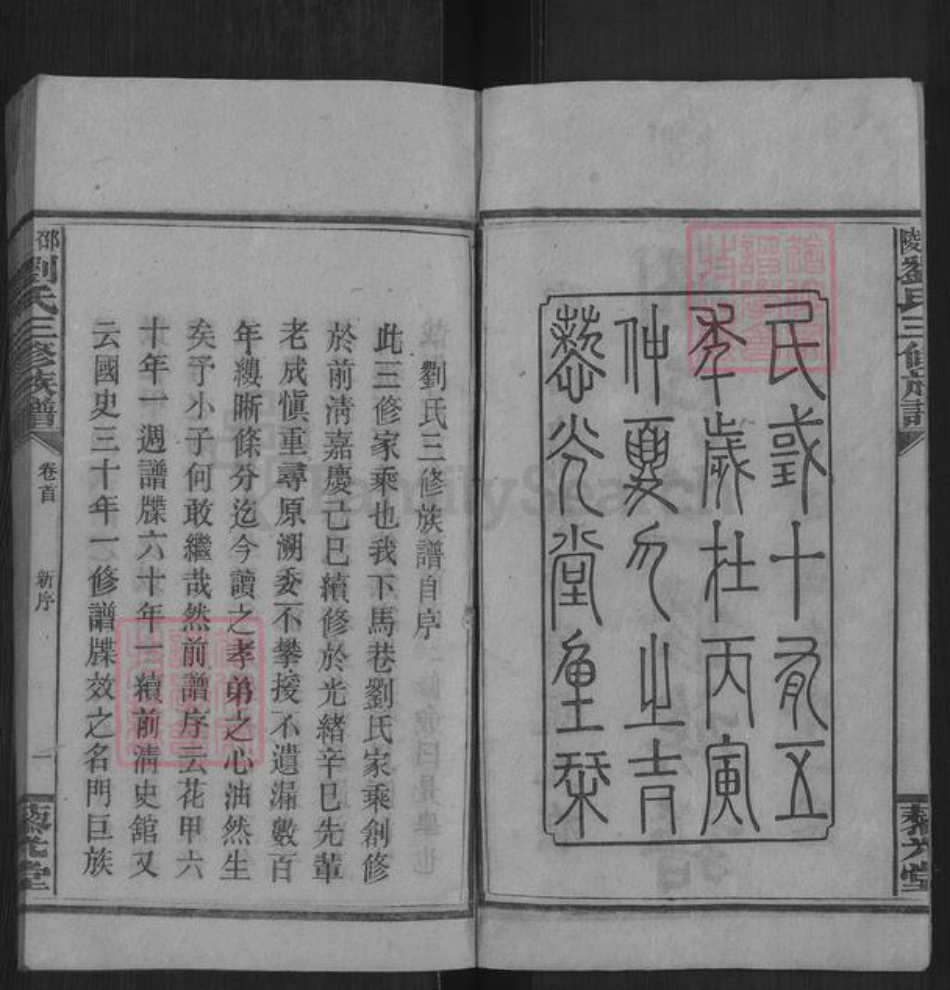 陵 劉氏三修族譜
藜光堂
民或十有五
秊歲在丙寅
仲夏月之吉
藜光堂重栞
劉氏三修族譜自序
此三修家乘也我下馬巷劉氏家乘創修
於前清嘉慶己巳續修於光緒辛巳先輩
老成慎重尋原溯委不攀援不遺漏數百
年縷晰條分迄今讀之孝弟之心油然生
矣予小子何敢繼哉然前譜序云花甲六
十年一週譜牒六十年一續前清史舘又
云國史三十年一修譜牒效之名門巨族
邵 劉氏三修族譜
卷首
新序
一
藜光堂
FamilySearch